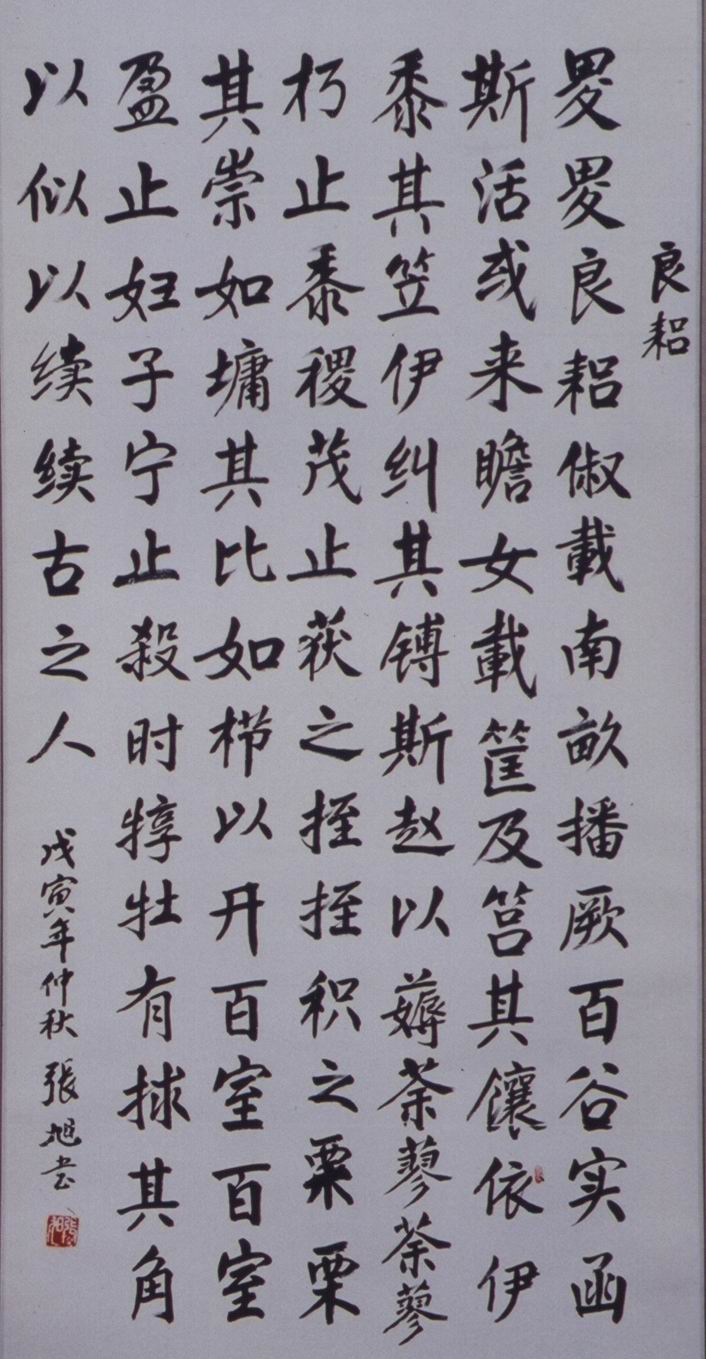 良耜
畟畟良耜俶載南畝播厥百谷实函
斯活或来瞻女載筐及筥其饟依伊
黍其笠伊纠其镈斯赵以薅荼蓼荼蓼
朽止黍稷茂止获之挃挃积之粟栗
其崇如墉其比如栉以开百室百室
盈止妇子宁止殺时犉牡有捄其角
以似以续续古之人
戊寅年仲秋 張旭书